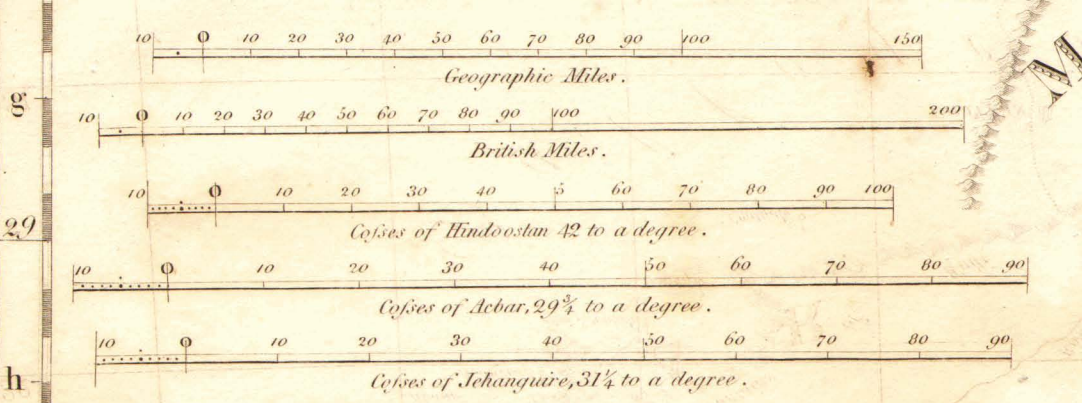 10 0 10 20 30 40 50 60 70 80 90 100 150
Geographic Miles.
g
10 0 10 20 30 40 50 60 70 80 90 100 200
British Miles.
M
10 0 10 20 30 40 5 60 70 80 90 100
29
Coſses of Hindoostan 42 to a degree.
10 0 10 20 30 40 50 60 70 80 90
Coſses of Acbar, 29¾ to a degree.
10 0 10 20 30 40 50 60 70 80 90
h
Coſses of Jehanguire, 31¼ to a degree.